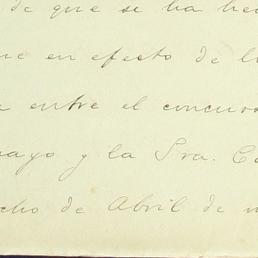 de que se ha hec
ue en efecto de l
entre el concurs
mayo y la Sra. Ca
cho de Abril de m